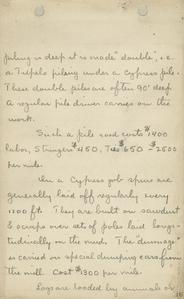 piling is deep it is made "double", i.e.
a Tupelo piling under a Cypress pile.
These double piles are often 90' deep
A regular pile driver carries on the
work.
Such a pile road costs $1400
labor, Stringers $450, Ties $650 - $2500
per mile.
On a Cypress job spurs are
generally laid off regularly every
1200 ft. They are built on sawdust
& over set of poles laid longi-
tudinally on the mud. The "dunnage"
is carried on special dumping cars from
the mill. Cost $1300 per mile.
Logs are loaded by animals or